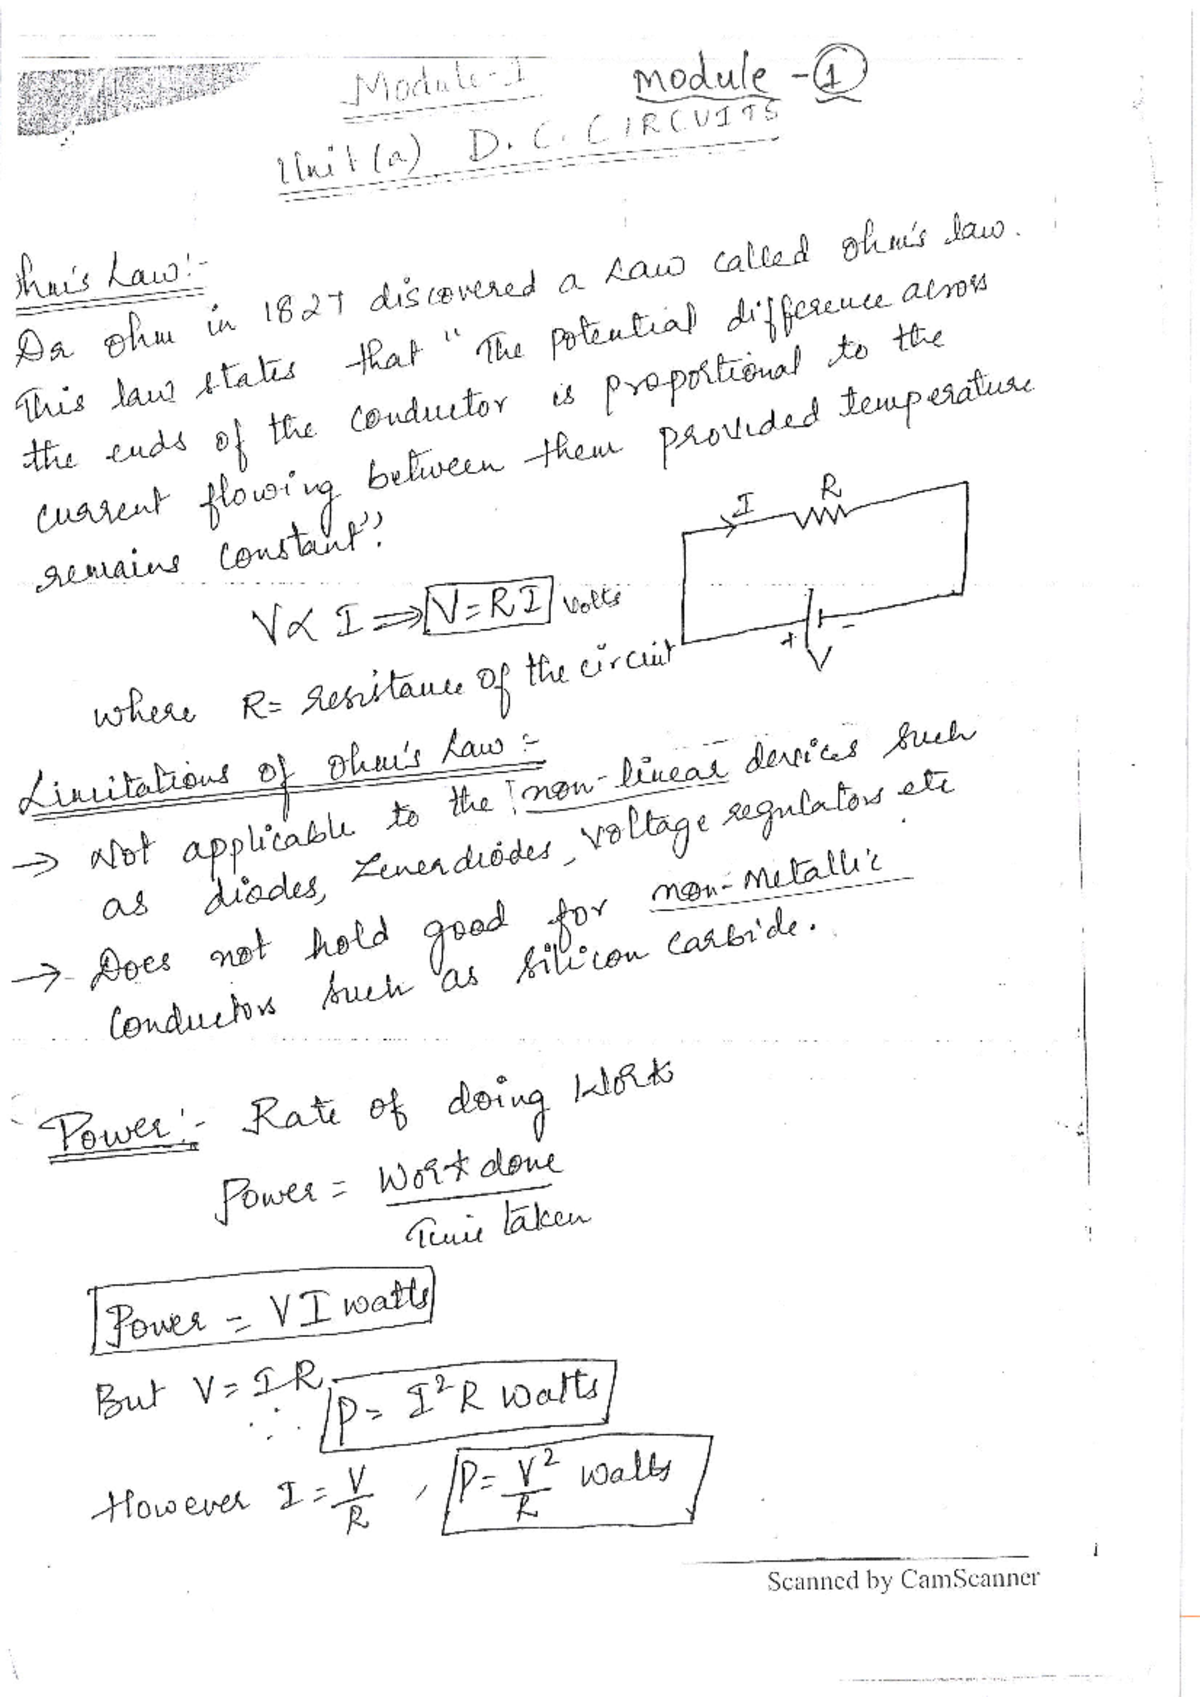 Module-1
Module - 1
Unit (a) D.C. CIRCUITS
hm's Law:-
Dr ohm in 1827 discovered a law called ohm's law.
This law states that "The potential difference across
the ends of the conductor is proportional to the
current flowing between them provided temperature
remains constant".
I R
V ∝ I ⇒ V = RI volts
+ -
V
where R = resistance of the circuit
Limitations of ohm's Law :-
→ Not applicable to the non-linear devices such
as diodes, Zenerdiodes, voltage regulators etc.
→ Does not hold good for non-Metallic
conductors such as silicon carbide.
Power:- Rate of doing Work
Power = Work done
Time taken
Power = VI watts
But V = IR
∴ P = I²R Watts
However I = V/R , P = V²/R Watts
1
Scanned by CamScanner